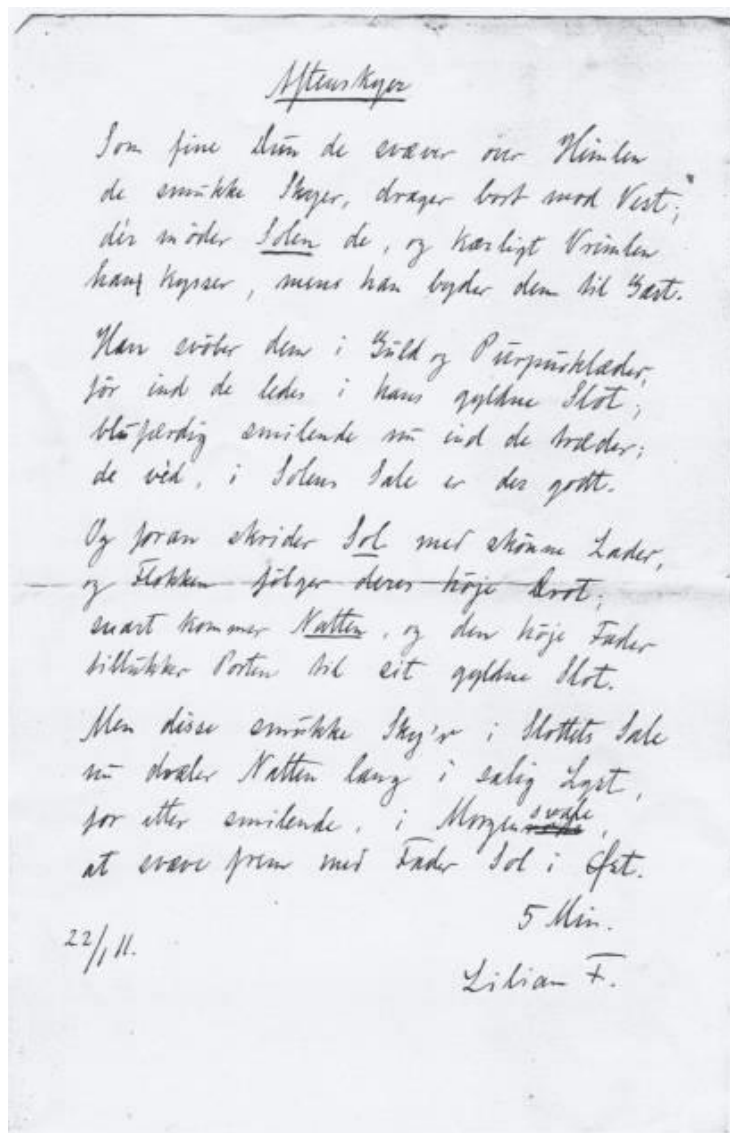 Aftenskyer
Som fine Dun de svæver over Himlen
de smukke Skyer, drager bort mod Vest;
dér møder Solen de, og kærligt Vrimlen
han kysser, mens han byder dem til Gæst.
Han svøber dem i Guld og Purpurklæder,
før ind de ledes i hans gyldne Slot;
blufærdig smilende nu ind de træder;
de véd, i Solens Sale er der godt.
Og foran skrider Sol med skønne Lader,
og Flokken følger deres høje Drot;
snart kommer Natten, og den høje Fader
tillukker Porten til sit gyldne Slot.
Men disse smukke Sky'r i Slottets Sale
nu dvæler Natten lang i salig Lyst,
for atter smilende, i Morgensvale,
at svæve frem med Fader Sol i Øst.
5 Min.
22/1 11.
Lilian F.